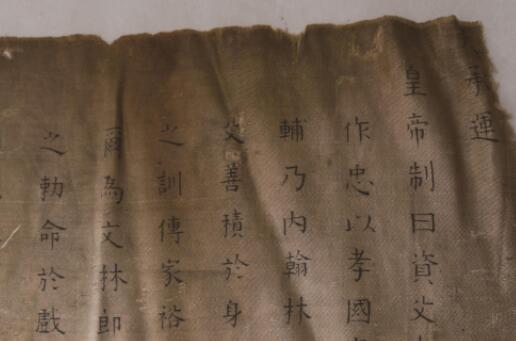 承運
皇帝制曰資父
作忠以孝國
輔乃內翰林
父善積於身
之訓傳家裕
爾為文林郎
之勅命於戲